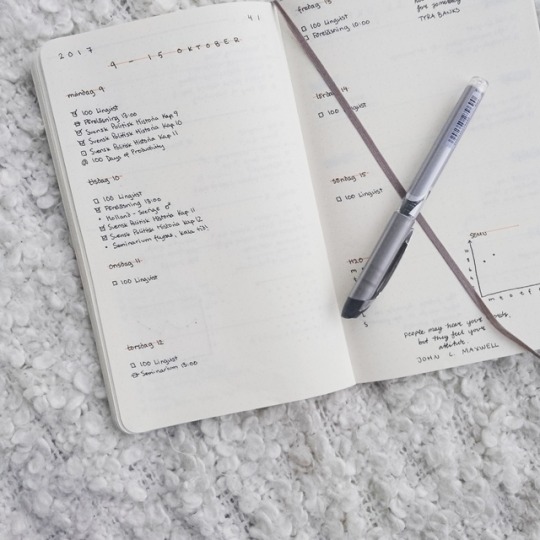 2017
41
9 - 15 OKTOBER
måndag 9
100 Lingvist
Föreläsning 13:00
Svensk Politisk Historia Kap 9
Svensk Politisk Historia Kap 10
Svensk Politisk Historia Kap 11
100 Days of Productivity
tisdag 10
100 Lingvist
Föreläsning 13:00
Holland - Sverige
Svensk Politisk Historia Kap 11
Svensk Politisk Historia Kap 12
Seminarium
onsdag 11
100 Lingvist
torsdag 12
100 Lingvist
Seminarium 13:00
fredag 13
100 Lingvist
Föreläsning 10:00
TYRA BANKS
lördag 14
100
söndag 15
100 Lingvist
People may hear your words,
but they feel your
attitude.
JOHN L. MAXWELL